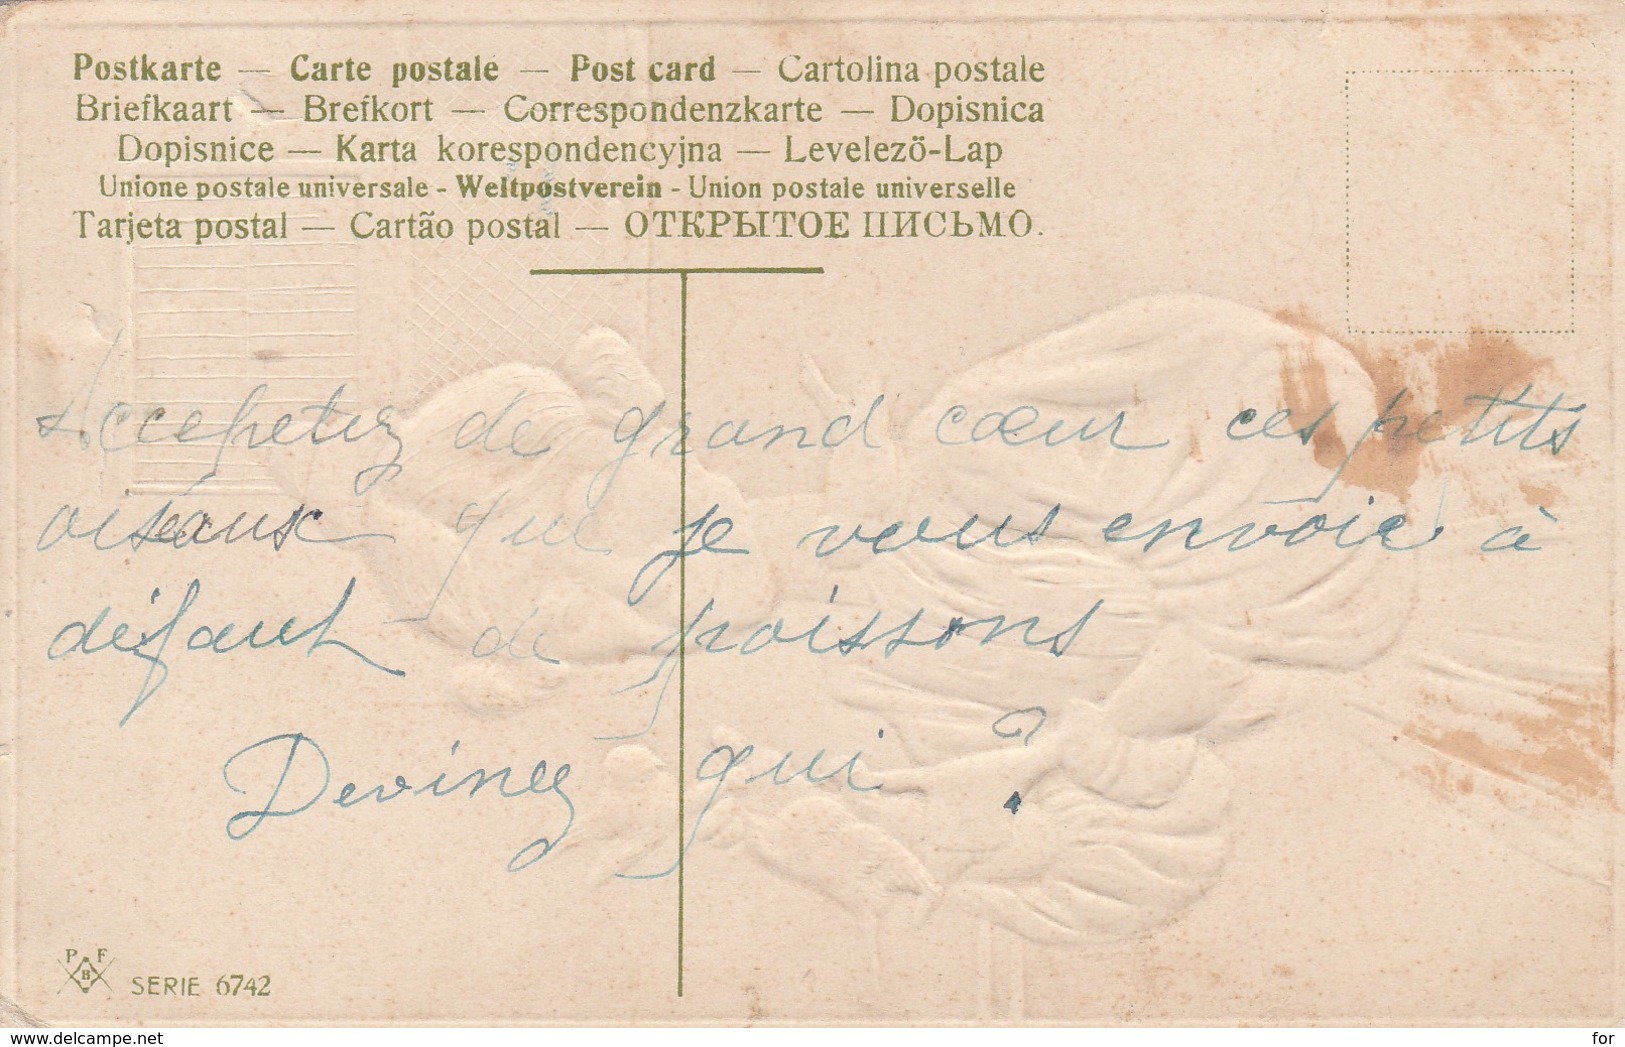 Postkarte — Carte postale — Post card — Cartolina postale
Briefkaart — Brefkort — Correspondenzkarte — Dopisnica
Dopisnice — Karta korespondencyjna — Levelezö-Lap
Unione postale universale - Weltpostverein - Union postale universelle
Tarjeta postal — Cartão postal — ОТКРЫТОЕ ПИСЬМО.
Accepetez de grand cœur ces petits
oiseaux que je vous envoie à
défaut de poissons
Devinez qui ?
P F
B
SERIE 6742
www.delcampe.net
for